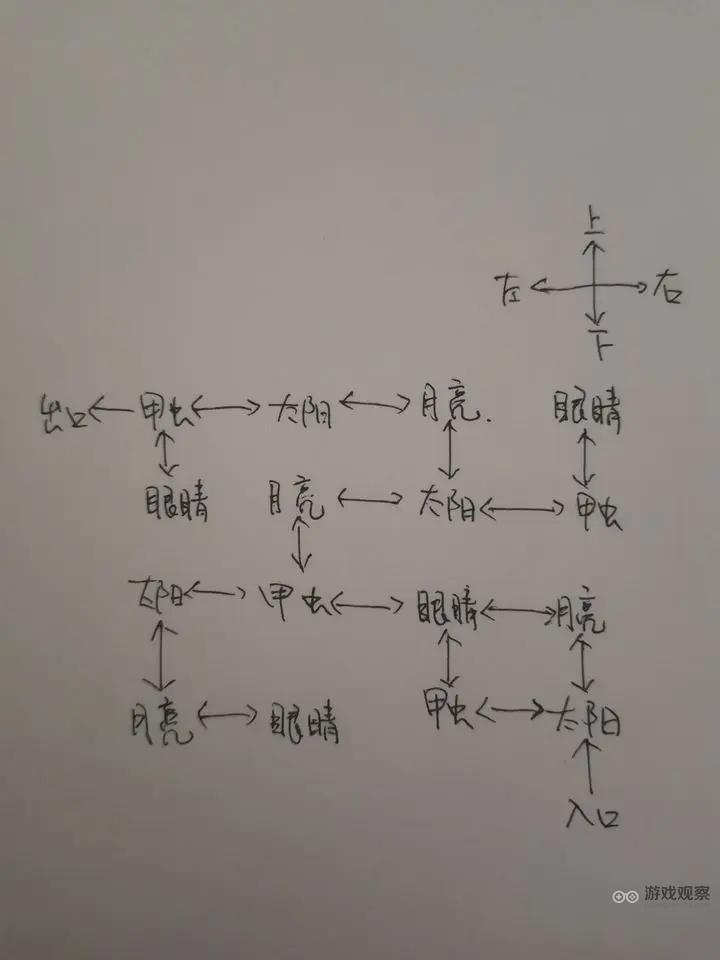 上
左 右
下
出口 甲虫 太阳 月亮. 眼睛
眼睛 月亮 太阳 甲虫
太阳 甲虫 眼睛 月亮
月亮 眼睛 甲虫 太阳
入口
游戏观察